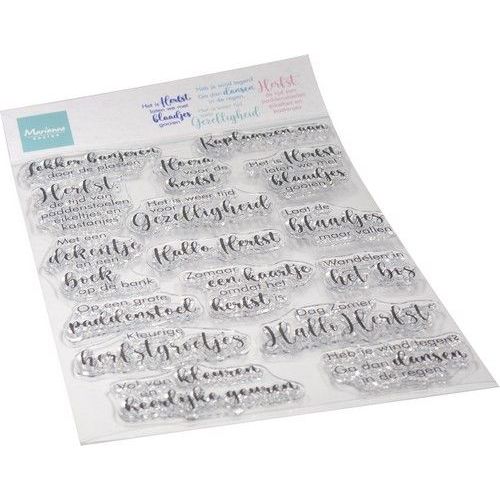 Marianne
DESIGN
Het is Herfst
laten we met
blaadjes
gooien
Heb je wind tegen?
Ga dan dansen
in de regen.
Het is weer tijd
voor
Gezelligheid
Herfst,
de tijd van
paddenstoelen
padkeitjes en
kastanjes
Lekker banjeren
door de plassen
Hoera
voor de
herfst
Kaplaarzen aan
Het is Herfst
laten we met
blaadjes
gooien
Herfst,
de tijd van
paddenstoelen
padkeitjes en
kastanjes
Het is weer tijd
voor
Gezelligheid
Laat de
blaadjes
maar vallen
Met een
dekentje
en een
boek
op de bank
Hallo Herfst
Zomaar
een kaartje
omdat het
herfst is
Wandelen in
het bos
Op een grote
paddenstoel
Dag Zomer
Hallo Herfst
Kleurige
herfstgroetjes
Heb je wind tegen?
Ga dan dansen
in de regen
Vol van kleuren
en
heerlijke geuren